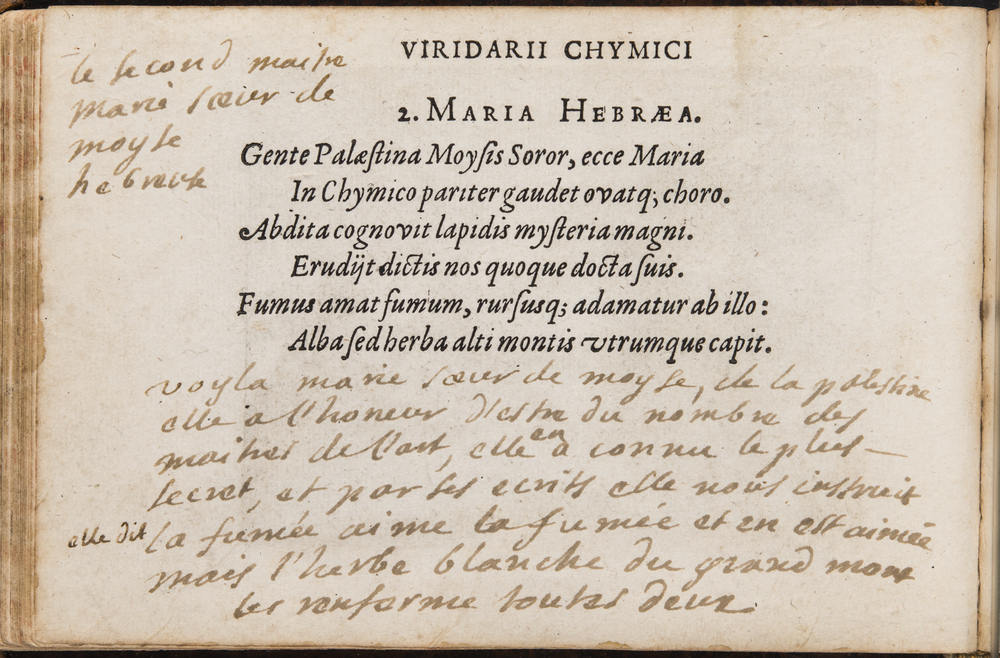 VIRIDARII CHYMICI
le second maitre
marie sœur de
moyse
hebreuse
2. MARIA HEBRÆA.
Gente Palæſtina Moyſis Soror, ecce Maria
In Chymico pariter gaudet ovatq; choro.
Abdita cognovit lapidis myſteria magni.
Erudijt dictis nos quoque docta ſuis.
Fumus amat fumum, rurſusq; adamatur ab illo:
Alba ſed herba alti montis vtrumque capit.
voyla marie sœur de moyse, de la palestine
elle a l'honeur d'estre du nombre des
maitres de l'art, elle en a connu le plus
secret, et par ses ecrits elle nous instruit
elle dit la fumée aime la fumée et en est aimée
mais l'herbe blanche du grand mont
les renferme toutes deux